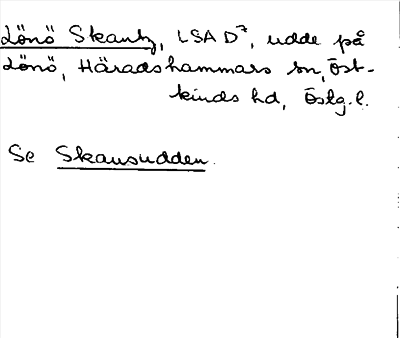 Lönö Skantz, LSA D7, udde på
Lönö, Häradshammars sn, Öst-
kinds hd, Östg. l.
Se Skansudden.